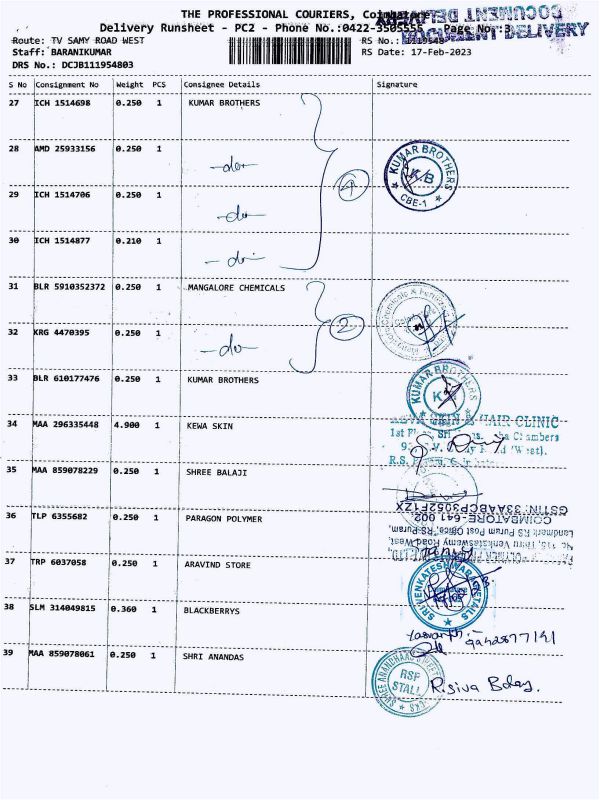 THE PROFESSIONAL COURIERS, Coimbatore
Delivery Runsheet - PC2 - Phone No.:0422-3505555 Page No.:3
DOCUMENT DELIVERY
DOCUMENT DELIVERY
Route: TV SAMY ROAD WEST
RS No.: 1119548
Staff: BARANIKUMAR
RS Date: 17-Feb-2023
DRS No.: DCJB111954803
S No Consignment No Weight PCS Consignee Details Signature
27 ICH 1514698 0.250 1 KUMAR BROTHERS
28 AMD 25933156 0.250 1 -do-
KUMAR BROTHERS
K.B
CBE-1
4
29 ICH 1514706 0.250 1 -do-
30 ICH 1514877 0.210 1 -do-
31 BLR 5910352372 0.250 1 MANGALORE CHEMICALS
2
32 KRG 4470395 0.250 1 -do-
33 BLR 610177476 0.250 1 KUMAR BROTHERS
KUMAR BROTHERS
34 MAA 296335448 4.900 1 KEWA SKIN
KEVA SKIN & HAIR CLINIC
1st Chambers
R.S.
35 MAA 859078229 0.250 1 SHREE BALAJI
36 TLP 6355682 0.250 1 PARAGON POLYMER
GSTIN: 33AABCP3052F1ZX
COIMBATORE-641 002
Landmark RS Puram Post Office, RS-Puram,
No. 115, Thiru Venkataswamy Road West,
37 TRP 6037058 0.250 1 ARAVIND STORE
SRI VENKATESHWARA
38 SLM 314049815 0.360 1 BLACKBERRYS
39 MAA 859078061 0.250 1 SHRI ANANDAS
RSP
STALL
R.Siva